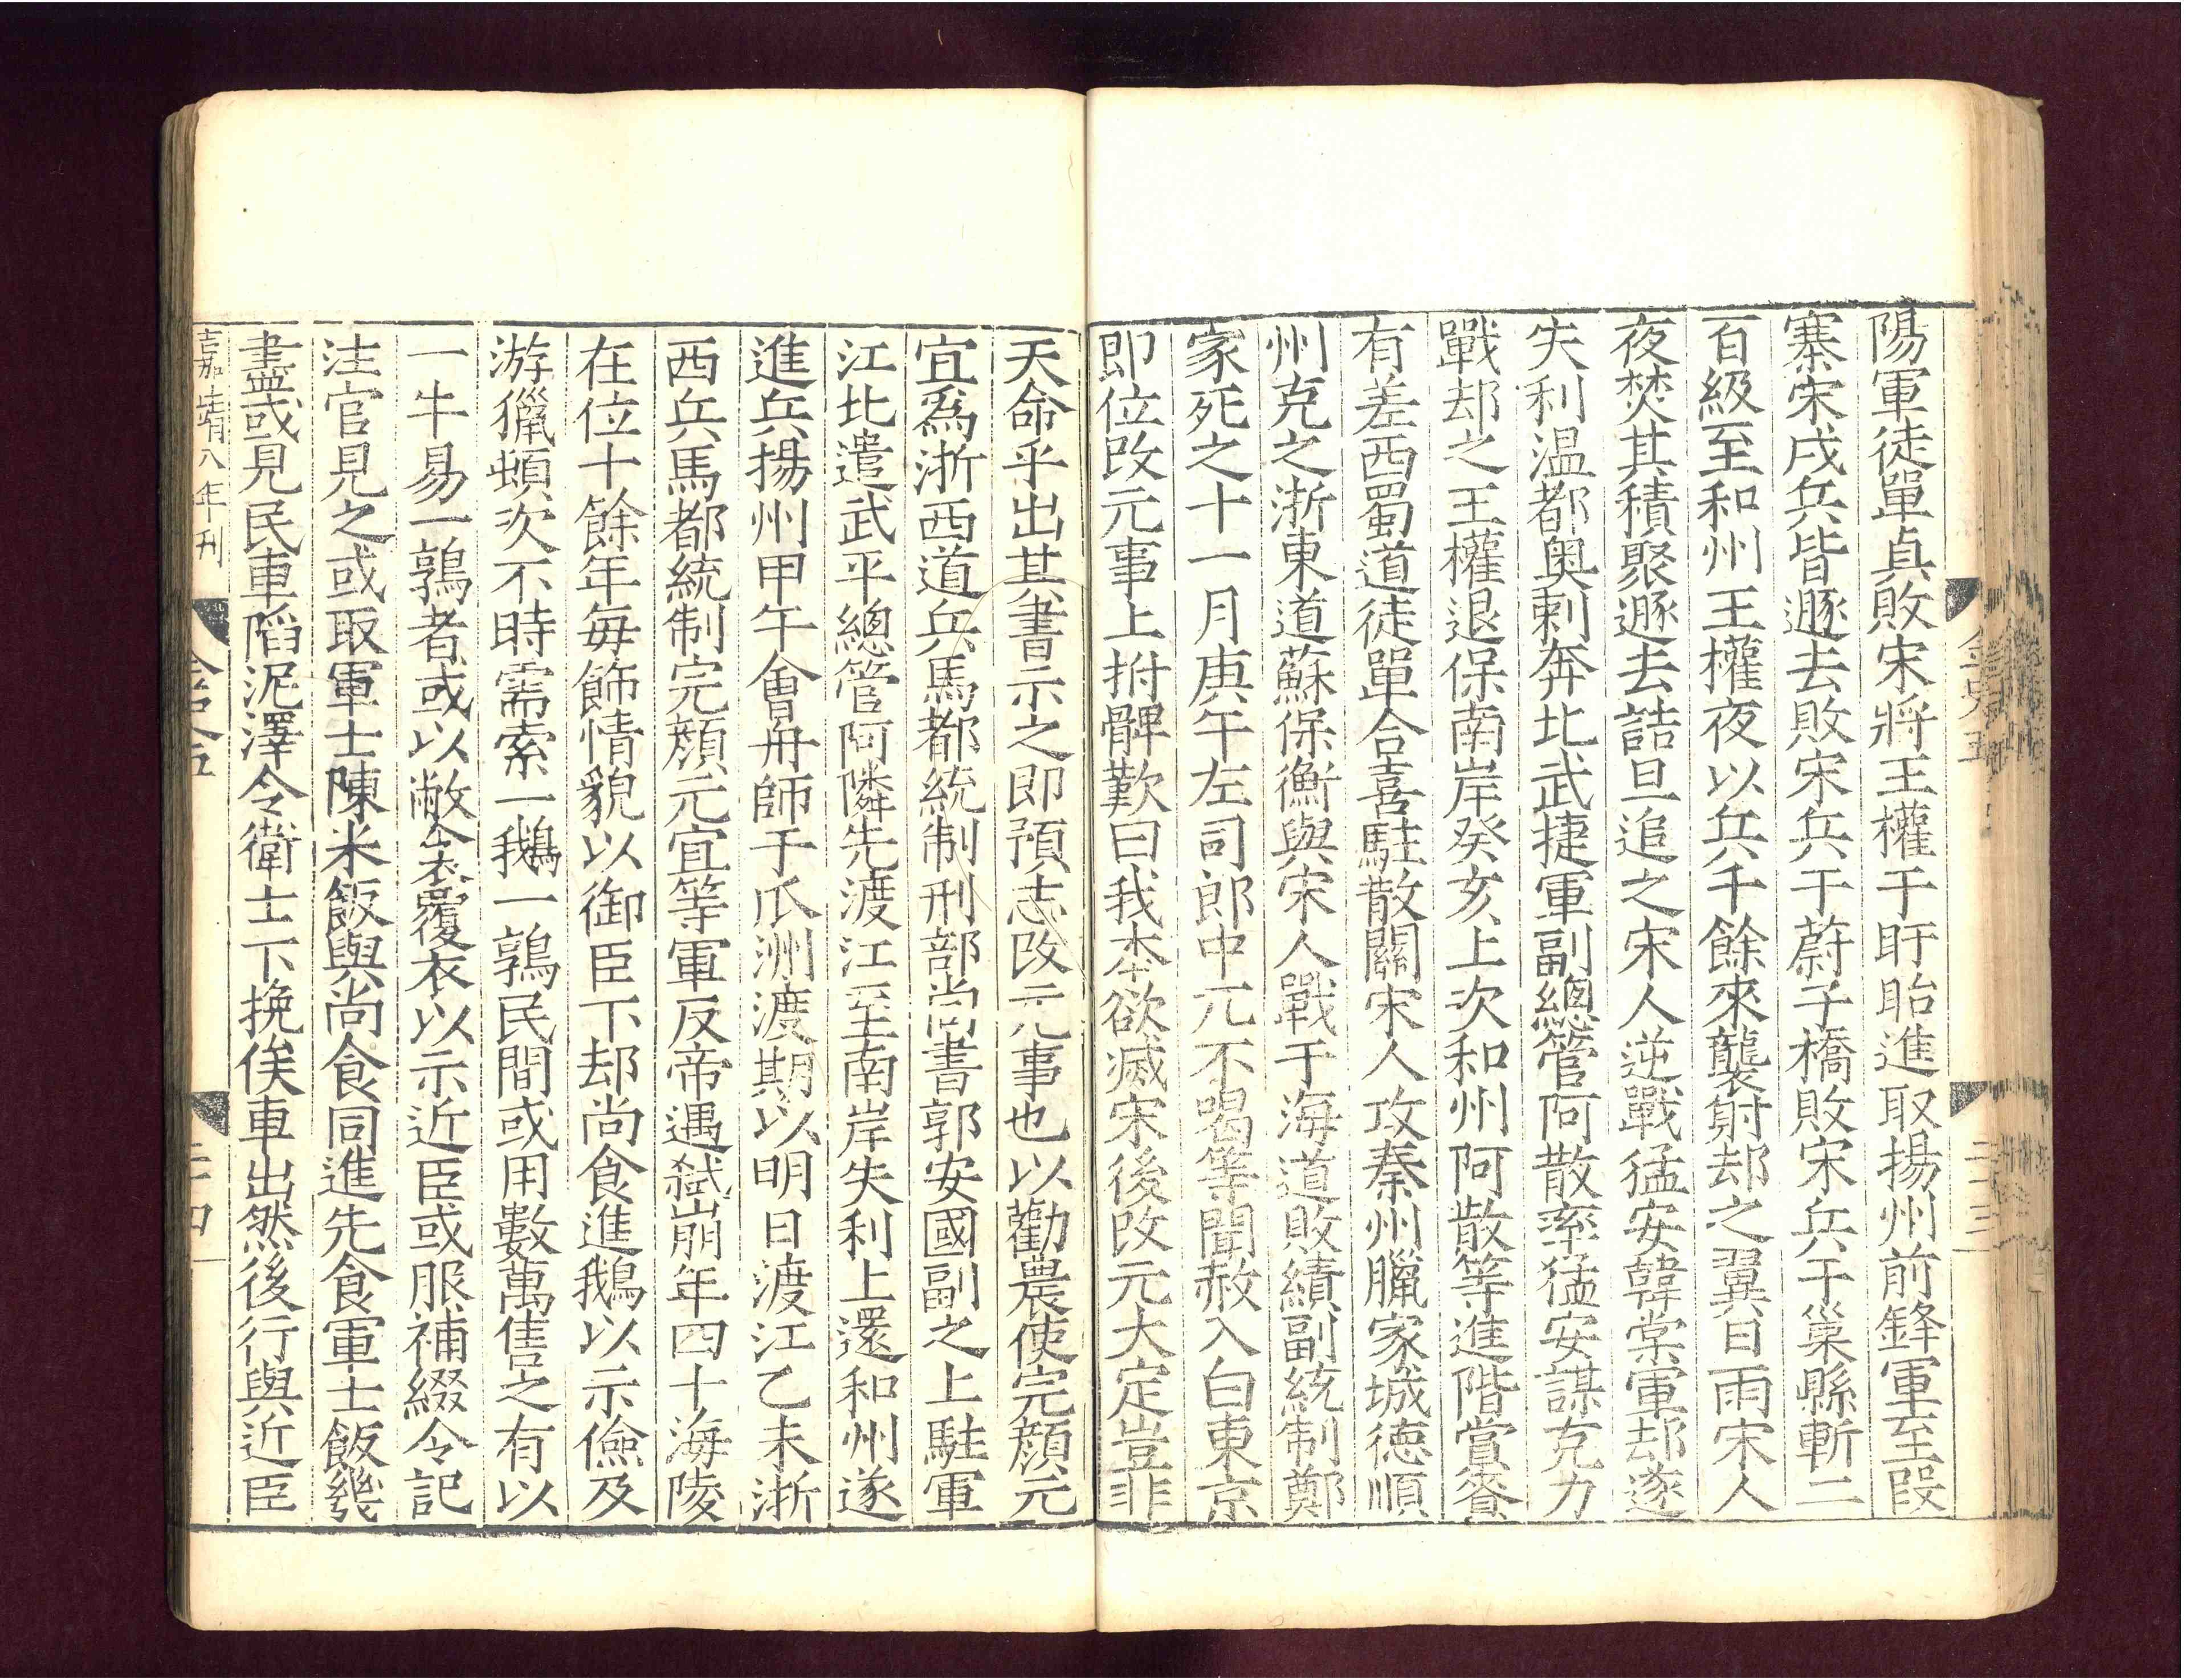 金史五
二十三
陽軍徒單貞敗宋將王權于盱眙進取揚州前鋒軍至段
寨宋戍兵皆遯去敗宋兵于蔚子橋敗宋兵于巢縣斬二
百級至和州王權夜以兵千餘來襲射却之翼日雨宋人
夜焚其積聚遯去詰旦追之宋人逆戰猛安韓棠軍却遂
失利溫都奧剌奔北武捷軍副總管阿散率猛安謀克力
戰却之王權退保南岸癸亥上次和州阿散等進階賞賚
有差西蜀道徒單合喜駐散關宋人攻秦州臘家城德順
州克之浙東道蘇保衡與宋人戰于海道敗績副統制鄭
家死之十一月庚午左司郎中兀不喝等聞赦入白東京
即位改元事上拊髀歎曰我本欲滅宋後改元大定豈非
天命乎出其書示之即預志改元事也以勸農使完顏元
宜爲浙西道兵馬都統制刑部尚書郭安國副之上駐軍
江北遣武平總管阿隣先渡江至南岸失利上還和州遂
進兵揚州甲午會舟師于瓜洲渡期以明日渡江乙未浙
西兵馬都統制完顏元宜等軍反帝遇弑崩年四十海陵
在位十餘年每飾情貌以御臣下却尚食進鵝以示儉及
游獵頓次不時需索一鵝一鶉民間或用數萬售之有以
一牛易一鶉者或以敝衾覆衣以示近臣或服補綴令記
注官見之或取軍士陳米飯與尚食同進先食軍士飯幾
盡或見民車陷泥澤令衛士下挽俟車出然後行與近臣
嘉靖八年刊
金史五
二十四